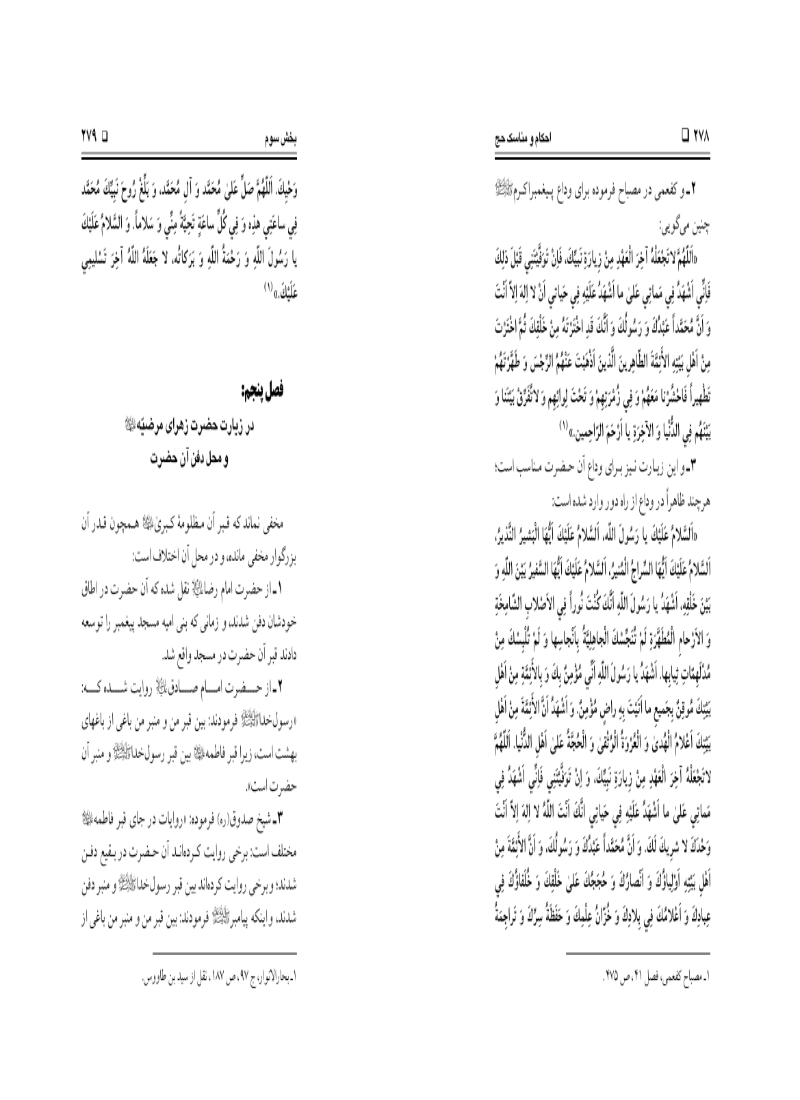 ۲۷۸ ❏ احکام و مناسک حج
۲ـ و کفعمی در مصباح فرموده برای وداع پیغمبراکرم ﷺ
چنین می‌گویی:
«اَللّهُمَّ لاتَجْعَلْهُ آخِرَ الْعَهْدِ مِنْ زِیارَةِ نَبِیِّكَ، فَاِنْ تَوَفَّیْتَنِي قَبْلَ ذلِكَ
فَاِنِّي اَشْهَدُ فِي مَماتِي عَلیٰ ما اَشْهَدُ عَلَیْهِ فِي حَیاتِي اَنْ لا اِلهَ اِلاّ اَنْتَ
وَ اَنَّ مُحَمَّداً عَبْدُكَ وَ رَسُولُكَ وَ اَنَّكَ قَدِ اخْتَرْتَهُ مِنْ خَلْقِكَ ثُمَّ اخْتَرْتَ
مِنْ اَهْلِ بَیْتِهِ الاَْئِمَّةَ الطّاهِرِینَ الَّذینَ اَذْهَبْتَ عَنْهُمُ الرِّجْسَ وَ طَهَّرْتَهُمْ
تَطْهیراً فَاحْشُرْنا مَعَهُمْ وَ فِي زُمْرَتِهِمْ وَ تَحْتَ لِوائِهِم وَ لاتُفَرِّقْ بَیْنَنا وَ
بَیْنَهُم فِي الدُّنْیا وَ الآخِرَةِ یا اَرْحَمَ الرّاحِمین.»(۱)
۳ـ و این زیارت نیز برای وداع آن حضرت مناسب است؛
هرچند ظاهراً در وداع از راه دور وارد شده است:
«اَلسَّلامُ عَلَیْكَ یا رَسُولَ اللّه، اَلسَّلامُ عَلَیْكَ اَیُّهَا الْبَشیرُ النَّذیرُ،
اَلسَّلامُ عَلَیْكَ اَیُّهَا السِّراجُ الْمُنیرُ، اَلسَّلامُ عَلَیْكَ اَیُّهَا السَّفیرُ بَیْنَ اللّهِ وَ
بَیْنَ خَلْقِهِ، اَشْهَدُ یا رَسُولَ اللّهِ اَنَّكَ كُنْتَ نُوراً فِي الاَصْلابِ الشّامِخَةِ
وَ الاَرْحامِ الْمُطَهَّرَةِ لَمْ تُنَجِّسْكَ الْجاهِلِیَّةُ بِاَنْجاسِها وَ لَمْ تُلْبِسْكَ مِنْ
مُدْلَهِمّاتِ ثِیابِها. اَشْهَدُ یا رَسُولَ اللّهِ اَنِّي مُؤْمِنٌ بِكَ وَ بِالاَئِمَّةِ مِنْ اَهْلِ
بَیْتِكَ مُوقِنٌ بِجَمیعِ ما اَتَیْتَ بِهِ راضٍ مُؤْمِنٌ. وَ اَشْهَدُ اَنَّ الاَئِمَّةَ مِنْ اَهْلِ
بَیْتِكَ اَعْلامُ الْهُدیٰ وَ الْعُرْوَةُ الْوُثْقیٰ وَ الْحُجَّةُ عَلیٰ اَهْلِ الدُّنْیا. اَللّهُمَّ
لاتَجْعَلْهُ آخِرَ الْعَهْدِ مِنْ زِیارَةِ نَبِیِّكَ، وَ اِنْ تَوَفَّیْتَنِي فَاِنِّي اَشْهَدُ فِي
مَماتِي عَلیٰ ما اَشْهَدُ عَلَیْهِ فِي حَیاتِي اِنَّكَ اَنْتَ اللّهُ لا اِلهَ اِلاّ اَنْتَ
وَحْدَكَ لا شریكَ لَكَ، وَ اَنَّ مُحَمَّداً عَبْدُكَ وَ رَسُولُكَ، وَ اَنَّ الاَئِمَّةَ مِنْ
اَهْلِ بَیْتِهِ اَوْلِیاؤُكَ وَ اَنْصارُكَ وَ حُجَجُكَ عَلیٰ خَلْقِكَ وَ خُلَفاؤُكَ فِي
عِبادِكَ وَ اَعْلامُكَ فِي بِلادِكَ وَ خُزّانُ عِلْمِكَ وَ حَفَظَةُ سِرِّكَ وَ تَراجِمَةُ
۱ـ مصباح کفعمی، فصل ۴۱، ص ۴۷۵.
بخش سوم ❏ ۲۷۹
وَحْیِكَ. اَللّهُمَّ صَلِّ عَلیٰ مُحَمَّد وَ آلِ مُحَمَّد، وَ بَلِّغْ رُوحَ نَبِیِّكَ مُحَمَّد
فِي ساعَتِي هذِه وَ فِي كُلِّ ساعَةٍ تَحِیَّةً مِنِّي وَ سَلاماً. وَ السَّلامُ عَلَیْكَ
یا رَسُولَ اللّهِ وَ رَحْمَةُ اللّهِ وَ بَرَكاتُه، لا جَعَلَهُ اللّهُ آخِرَ تَسْلیمِي
عَلَیْكَ.»(۱)
فصل پنجم:
در زیارت حضرت زهرای مرضیّه ﷺ
و محل دفن آن حضرت
مخفی نماند که قبر آن مظلومهٔ کبریٰ ﷺ همچون قدر آن
بزرگوار مخفی مانده، و در محل آن اختلاف است:
۱ـ از حضرت امام رضا ﷺ نقل شده که آن حضرت در اطاق
خودشان دفن شدند، و زمانی که بنی امیه مسجد پیغمبر را توسعه
دادند قبر آن حضرت در مسجد واقع شد.
۲ـ از حضرت امام صادق ﷺ روایت شده که:
«رسول‌خدا ﷺ فرمودند: بین قبر من و منبر من باغی از باغهای
بهشت است، زیرا قبر فاطمه ﷺ بین قبر رسول‌خدا ﷺ و منبر آن
حضرت است».
۳ـ شیخ صدوق(ره) فرموده: «روایات در جای قبر فاطمه ﷺ
مختلف است: برخی روایت کرده‌اند آن حضرت در بقیع دفن
شدند؛ و برخی روایت کرده‌اند بین قبر رسول‌خدا ﷺ و منبر دفن
شدند، و اینکه پیامبر ﷺ فرمودند: بین قبر من و منبر من باغی از
۱ـ بحارالانوار، ج ۹۷، ص ۱۸۷، نقل از سید بن طاووس.